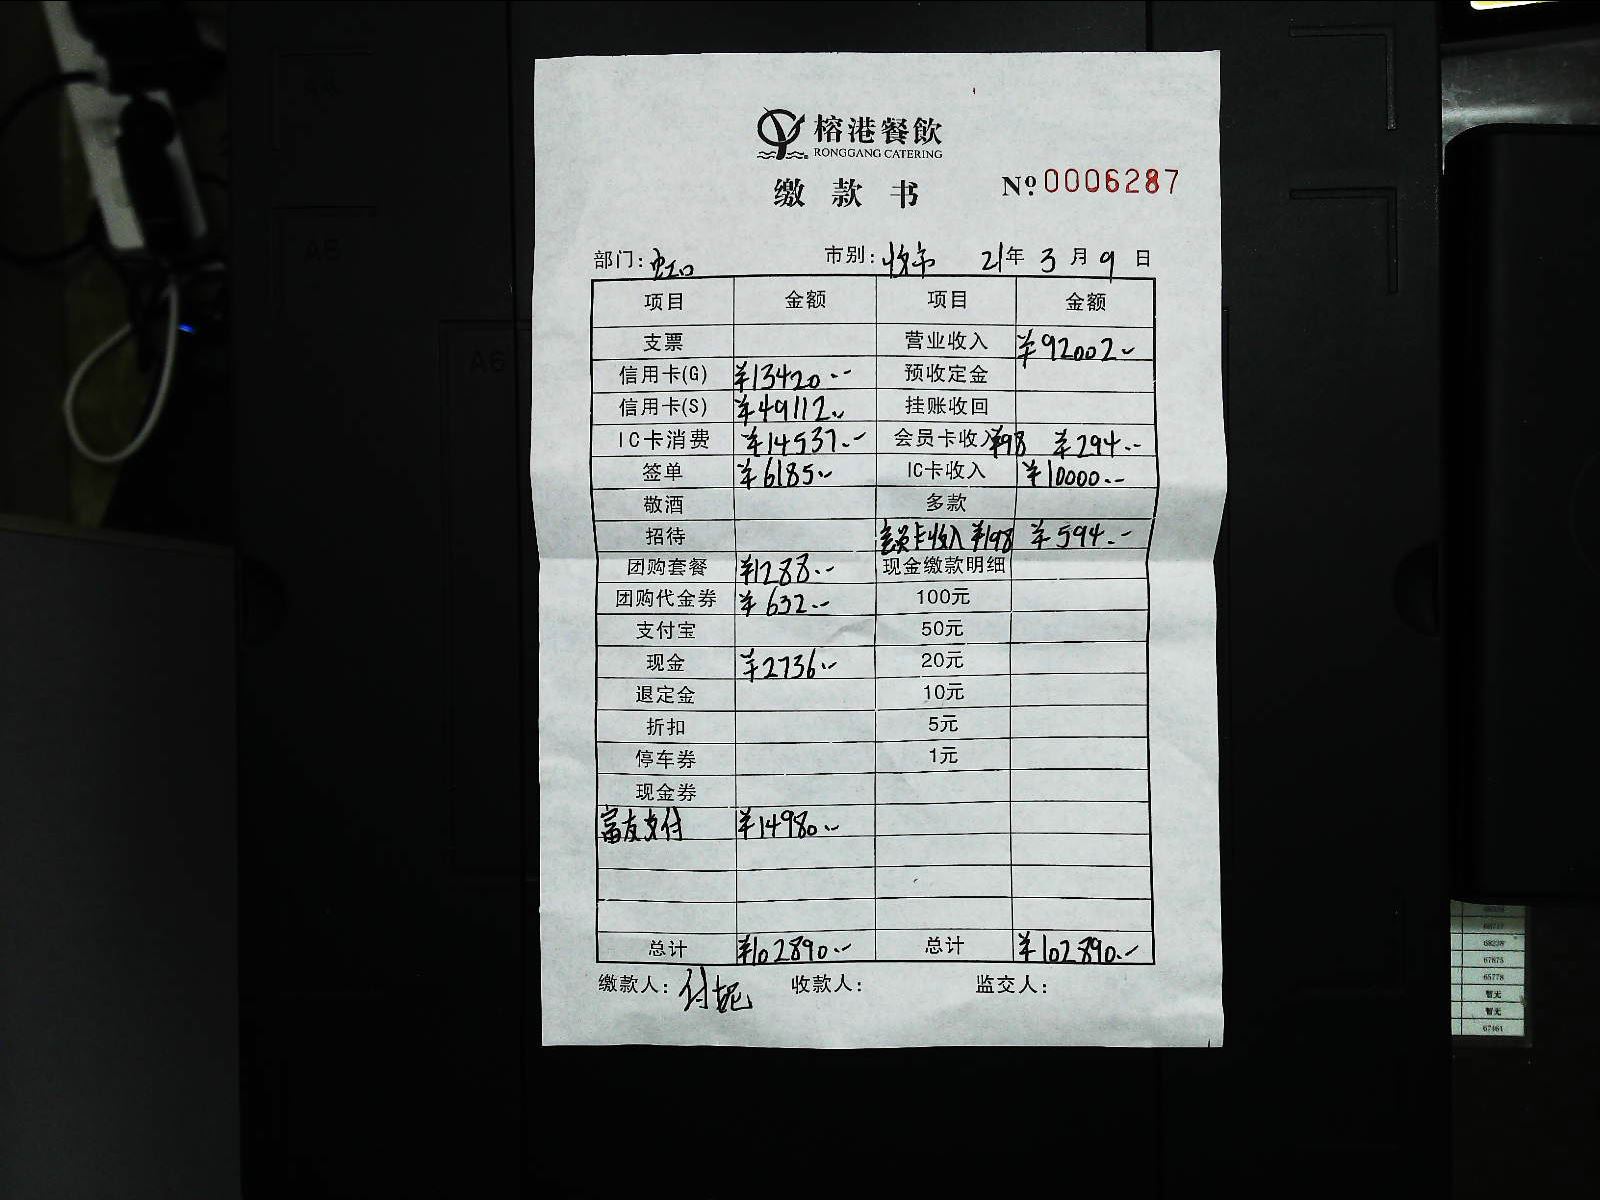 榕港餐飲
RONGGANG CATERING
缴款书 Nº 0006287
部门: 虹口 市别: 21年 3月 9日
项目 金额 项目 金额
支票 营业收入 ¥92002.-
信用卡(G) ¥13420.- 预收定金
信用卡(S) ¥49112.- 挂账收回
IC卡消费 ¥14537.- 会员卡收入¥98 ¥294.-
签单 ¥6185.- IC卡收入 ¥10000.-
敬酒 多款
招待 会员卡收入¥198 ¥594.-
团购套餐 ¥1288.- 现金缴款明细
团购代金券 ¥632.- 100元
支付宝 50元
现金 ¥2736.- 20元
退定金 10元
折扣 5元
停车券 1元
现金券
富友支付 ¥14980.-
总计 ¥102890.- 总计 ¥102890.-
缴款人: 付妮 收款人: 监交人:
A5
A6
68238
67875
65778
暂无
暂无
67461